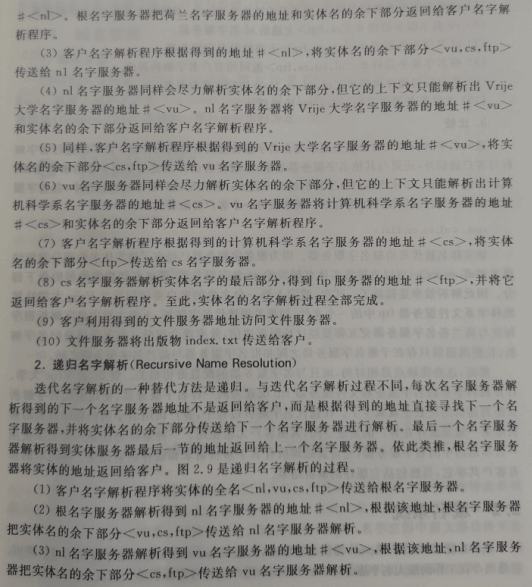 #<nl>。根名字服务器把荷兰名字服务器的地址和实体名的余下部分返回给客户名字解
析程序。
(3) 客户名字解析程序根据得到的地址#<nl>,将实体名的余下部分<vu,cs,ftp>
传送给 nl 名字服务器。
(4) nl 名字服务器同样会尽力解析实体名的余下部分,但它的上下文只能解析出 Vrije
大学名字服务器的地址#<vu>。nl 名字服务器将 Vrije 大学名字服务器的地址#<vu>
和实体名的余下部分返回给客户名字解析程序。
(5) 同样,客户名字解析程序根据得到的 Vrije 大学名字服务器的地址#<vu>,将实
体名的余下部分<cs,ftp>传送给 vu 名字服务器。
(6) vu 名字服务器同样会尽力解析实体名的余下部分,但它的上下文只能解析出计算
机科学系名字服务器的地址#<cs>。vu 名字服务器将计算机科学系名字服务器的地址
#<cs>和实体名的余下部分返回给客户名字解析程序。
(7) 客户名字解析程序根据得到的计算机科学系名字服务器的地址#<cs>,将实体
名的余下部分<ftp>传送给 cs 名字服务器。
(8) cs 名字服务器解析实体名字的最后部分,得到 fip 服务器的地址#<ftp>,并将它
返回给客户名字解析程序。至此,实体名的名字解析过程全部完成。
(9) 客户利用得到的文件服务器地址访问文件服务器。
(10) 文件服务器将出版物 index. txt 传送给客户。
2. 递归名字解析(Recursive Name Resolution)
迭代名字解析的一种替代方法是递归。与迭代名字解析过程不同,每次名字服务器解
析得到的下一个名字服务器地址不是返回给客户,而是根据得到的地址直接寻找下一个名
字服务器,并将实体名的余下部分传送给下一个名字服务器进行解析。最后一个名字服务
器解析得到实体服务器最后一节的地址返回给上一个名字服务器。依此类推,根名字服务
器将实体的地址返回给客户。图 2.9 是递归名字解析的过程。
(1) 客户名字解析程序将实体的全名<nl,vu,cs,ftp>传送给根名字服务器。
(2) 根名字服务器解析得到 nl 名字服务器的地址#<nl>,根据该地址,根名字服务器
把实体名的余下部分<vu,cs,ftp>传送给 nl 名字服务器解析。
(3) nl 名字服务器解析得到 vu 名字服务器的地址#<vu>,根据该地址,nl 名字服务
器把实体名的余下部分<cs,ftp>传送给 vu 名字服务器解析。